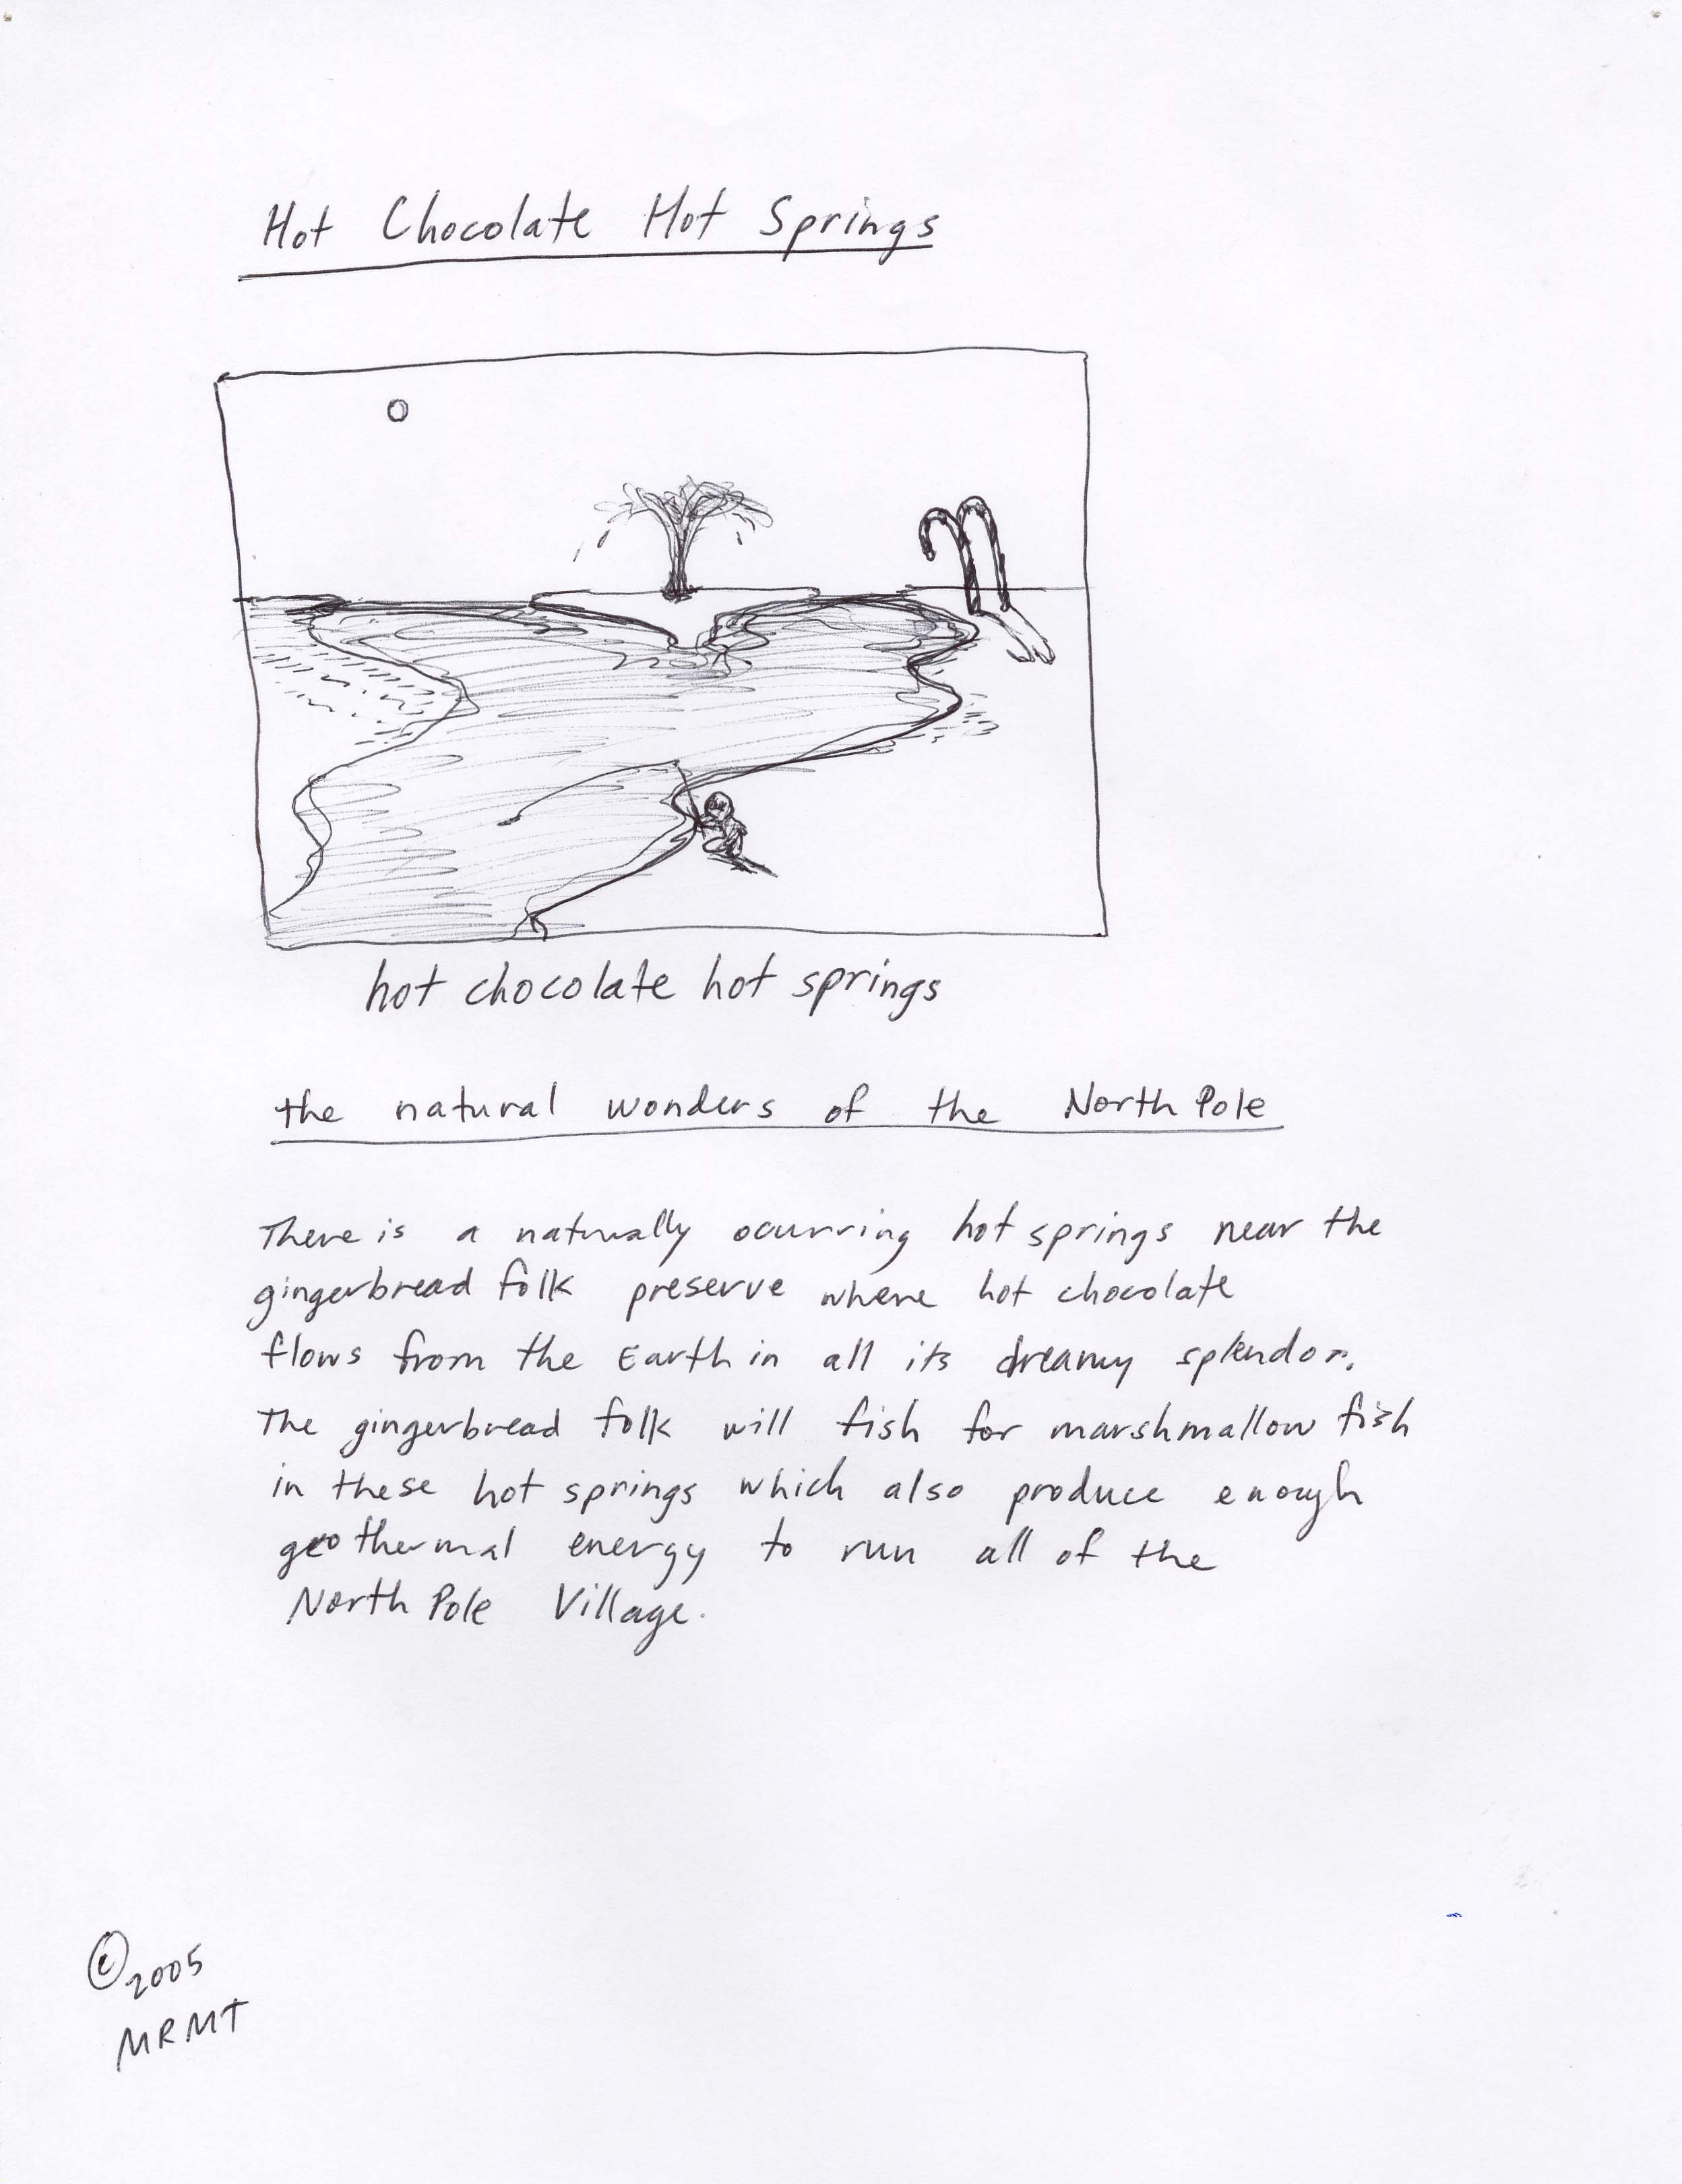 Hot Chocolate Hot Springs
hot chocolate hot springs
the natural wonders of the North Pole
There is a naturally ocurring hot springs near the
gingerbread folk preserve where hot chocolate
flows from the Earth in all its dreamy splendor.
The gingerbread folk will fish for marshmallow fish
in these hot springs which also produce enough
geothermal energy to run all of the
North Pole Village.
©2005
MRMT